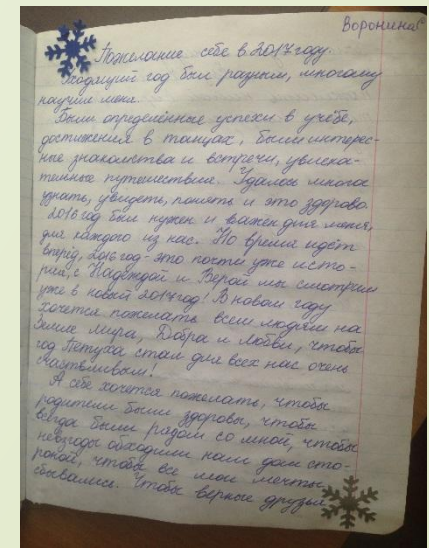 Воронина
Пожелание себе в 2017 году.
Уходящий год был разным, многому
научил меня.
Были определённые успехи в учёбе,
достижения в танцах, были интерес-
ные знакомства и встречи, увлека-
тельные путешествия. Удалось много
узнать, увидеть, понять и это здорово
2016 год был нужен и важен для меня,
для каждого из нас. Но время идёт
вперёд, 2016 год - это почти уже исто-
рия, с Надеждой и Верой мы смотрим
уже в новый 2017 год! В новом году
хочется пожелать всем людям на
Земле Мира, Добра и Любви, чтобы
год Петуха стал для всех нас очень
счастливым!
А себе хочется пожелать, чтобы
родители были здоровы, чтобы
всегда были рядом со мной, чтобы
невзгоды обходили наш дом сто-
роной, чтобы все мои мечты
сбывались. Чтобы верные друзья